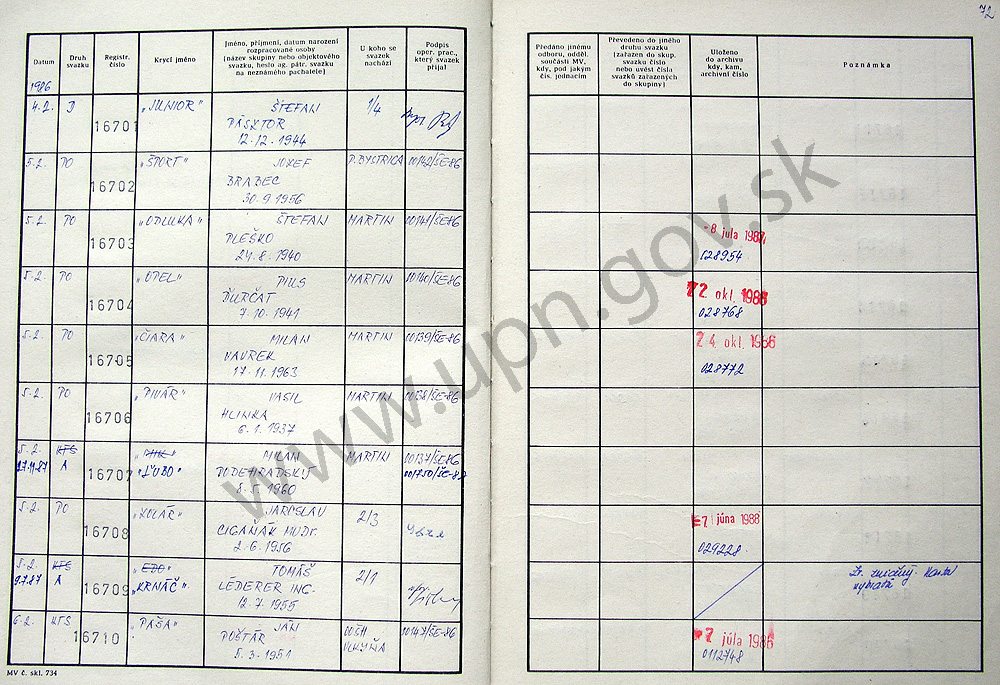 72
Datum
Druh svazku
Registr. číslo
Krycí jméno
Jméno, příjmení, datum narození
rozpracované osoby
(název skupiny nebo objektového
svazku, heslo sig. pátr. svazku
na neznámého pachatele)
U koho se
svazek
nachází
Podpis
oper. prac.,
který svazek
přijal
Předáno jinému
odboru, odděl.
součásti MV,
kdy, pod jakým
čís. jednacím
Převedeno do jiného
druhu svazku
(zařazen do skup.
svazku číslo
nebo uvést čísla
svazků zařazených
do skupiny)
Uloženo
do archivu
kdy, kam,
archivní číslo
Poznámka
1986
4.2. D 16701 "JUNIOR" ŠTEFAN 1/4
PÁSZTOR
12.12.1944
5.2. PO 16702 "ŠPORT" JOZEF P. BYSTRICA 00142/ŠE-86
BRABEC
30.9.1956
5.2. PO 16703 "ODLUKA" ŠTEFAN MARTIN 00141/ŠE-86 -8 júla 1987
PLEŠKO 028954
24.8.1940
5.2. PO 16704 "OPEL" PIUS MARTIN 00140/ŠE-86 22. okt. 1986
ĎURČAT 028768
7.10.1941
5.2. PO 16705 "ČIARA" MILAN MARTIN 00139/ŠE-86 24. okt. 1986
VAVREK 028772
17.11.1963
5.2. PO 16706 "PIVÁR" VASIL MARTIN 00138/ŠE-86
HLINKA
6.1.1937
5.2. KTS 16707 MILAN MARTIN 00137/ŠE-86
27.11.87 A "ĽUBO" PODEHRADSKÝ 001750/ŠE-87
8.5.1960
5.2. PO 16708 "KOLÁR" JAROSLAV 2/3 júna 1988
CIGÁŇÁK MUDr. 029228
2.6.1956
5.2. KTS 16709 "EDO" TOMÁŠ 2/1
9.7.87 A "KRNÁČ" LÉDERER ING.
12.7.1955
6.2. KTS 16710 "PAŠA" JÁN OOŠH 00147/ŠE-86 7 júla 1986
POŠTÁR VLKYŇA 0112748
5.3.1951
MV č. skl. 734
www.upn.gov.sk